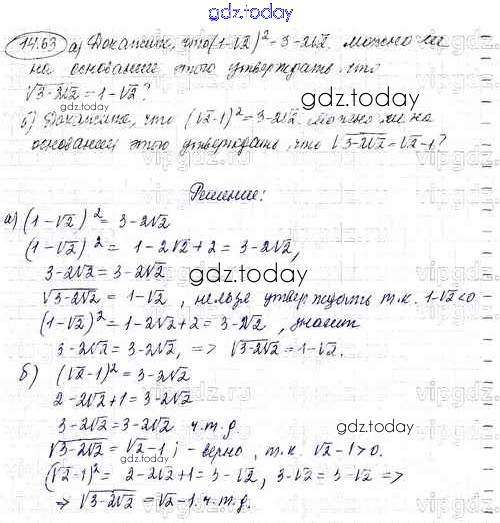 gdz.today
14.63 а) Докажите, что (1-√2)² = 3-2√2. можно ли
на основании этого утверждать, что
√3-2√2 = 1-√2?
gdz.today
б) Докажите, что (√2-1)² = 3-2√2. Можно ли на
основании этого утверждать, что √3-2√2 = √2-1?
Решение:
а) (1-√2)² = 3-2√2
(1-√2)² = 1-2√2+2 = 3-2√2,
3-2√2 = 3-2√2
gdz.today
√3-2√2 = 1-√2, нельзя утверждать т.к. 1-√2<0
(1-√2)² = 1-2√2+2 = 3-2√2, значит
3-2√2 = 3-2√2, => √3-2√2 = 1-√2.
gdz.today
б) (√2-1)² = 3-2√2
2-2√2+1 = 3-2√2
3-2√2 = 3-2√2 ч.т.д.
√3-2√2 = √2-1; - верно, т.к. √2-1>0.
gdz.today
(√2-1)² = 2-2√2+1 = 3-√2, 3-√2 = 3-√2 =>
=> √3-2√2 = √2-1. ч.т.д.
gdz.today